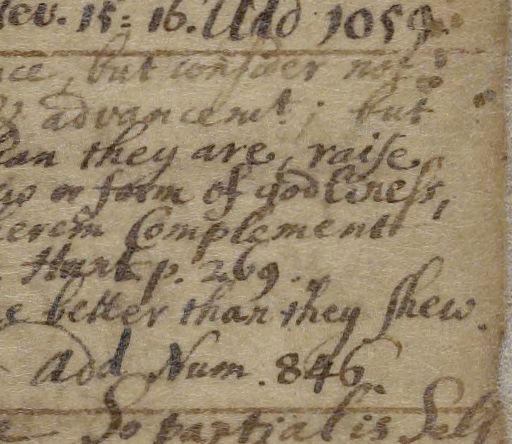 Rev. 15: 16. Add 1059.
nce, but consider not
& advancemt; but
than they are, raise
or form of godliness,
Complement
Hunt. p. 269.
better than they shew.
Add Num. 846
So partial is Self